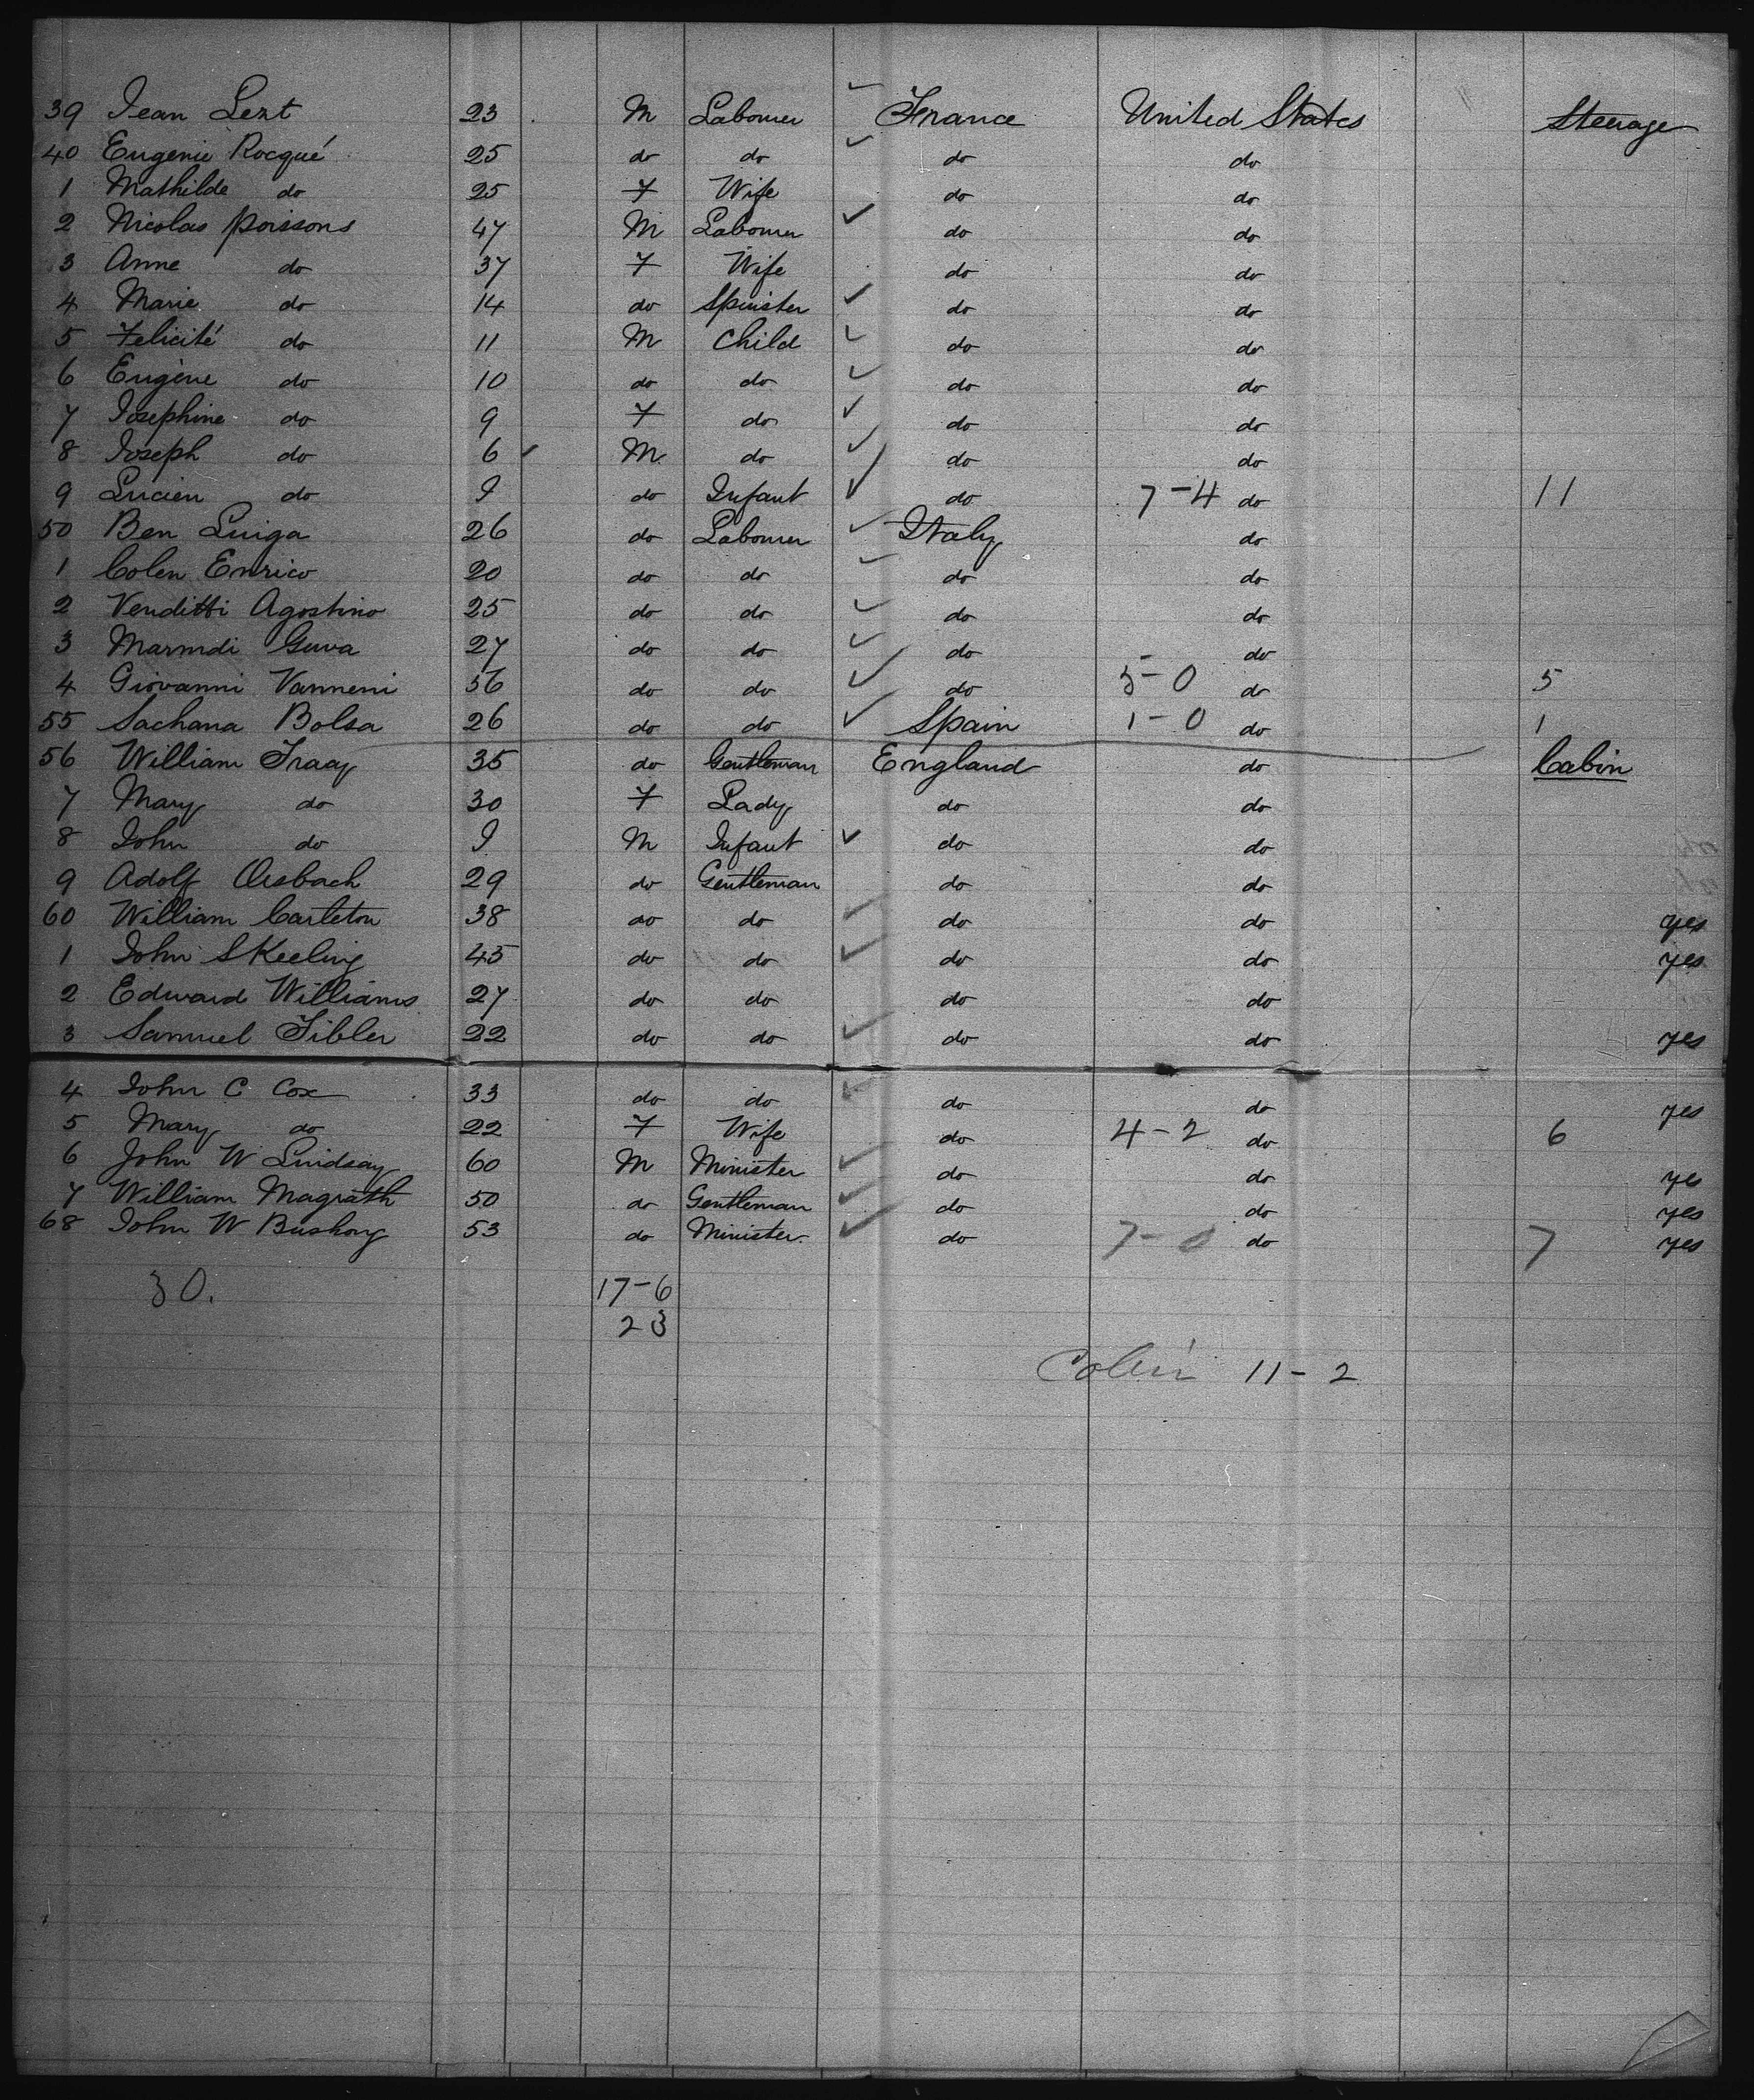 39 Jean Lezt 23 M Labourer France United States Steerage
40 Eugenie Rocqué 25 do do do do
1 Mathilde do 25 F Wife do do
2 Nicolas Poissons 47 M Labourer do do
3 Anne do 37 F Wife do do
4 Marie do 14 do Spinster do do
5 Felicité do 11 M Child do do
6 Eugène do 10 do do do do
7 Josephine do 9 F do do do
8 Joseph do 6 M do do do
9 Lucien do I do Infant do 7-4 do 11
50 Ben Luiga 26 do Labourer Italy do
1 Colen Enrico 20 do do do do
2 Venditti Agostino 25 do do do do
3 Marmdi Guva 27 do do do do
4 Giovanni Vanneni 56 do do do 5-0 do 5
55 Sachana Bolsa 26 do do Spain 1-0 do 1
56 William 35 do Gentleman England do Cabin
7 Mary do 30 F Lady do do
8 John do I M Infant do do
9 Adolf 29 do Gentleman do do
60 William Carleton 38 do do do do yes
1 John Skeeling 45 do do do do yes
2 Edward Williams 27 do do do do
3 Samuel Sibler 22 do do do do yes
4 John C Cox 33 do do do do yes
5 Mary do 22 F Wife do 4-2 do 6
6 John W Lindsay 60 M Minister do do yes
7 William Magrath 50 do Gentleman do do yes
68 John W Bushong 53 do Minister do 7-0 do 7 yes
30. 17-6
23
11-2